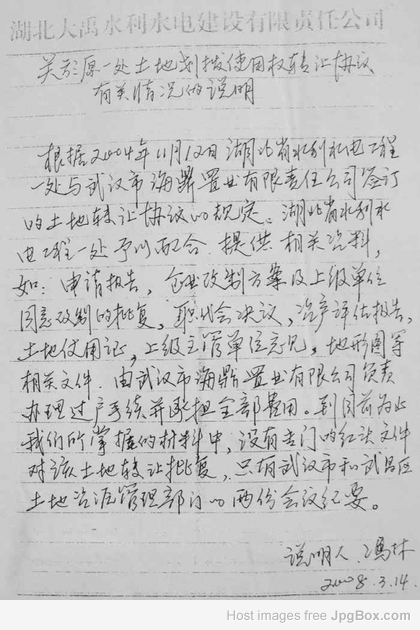 湖北大禹水利水电建设有限责任公司
关于原一处土地划拨使用权转让协议
有关情况的说明
根据2004年11月12日湖北省水利水电工程
一处与武汉市海鼎置业有限责任公司签订
的土地转让协议的规定。湖北省水利水
电工程一处予以配合提供相关资料,
如:申请报告,企业改制方案及上级单位
同意改制的批复,职代会决议,资产评估报告,
土地使用证,上级主管单位意见,地形图等
相关文件。由武汉市海鼎置业有限公司负责
办理过户手续并承担全部费用。到目前为止
我们所掌握的材料中,没有专门的红头文件
对该土地转让批复,只有武汉市和武昌区
土地资源管理部门的两份会议纪要。
说明人:冯林
2008.3.14.
Host images free JpgBox.com